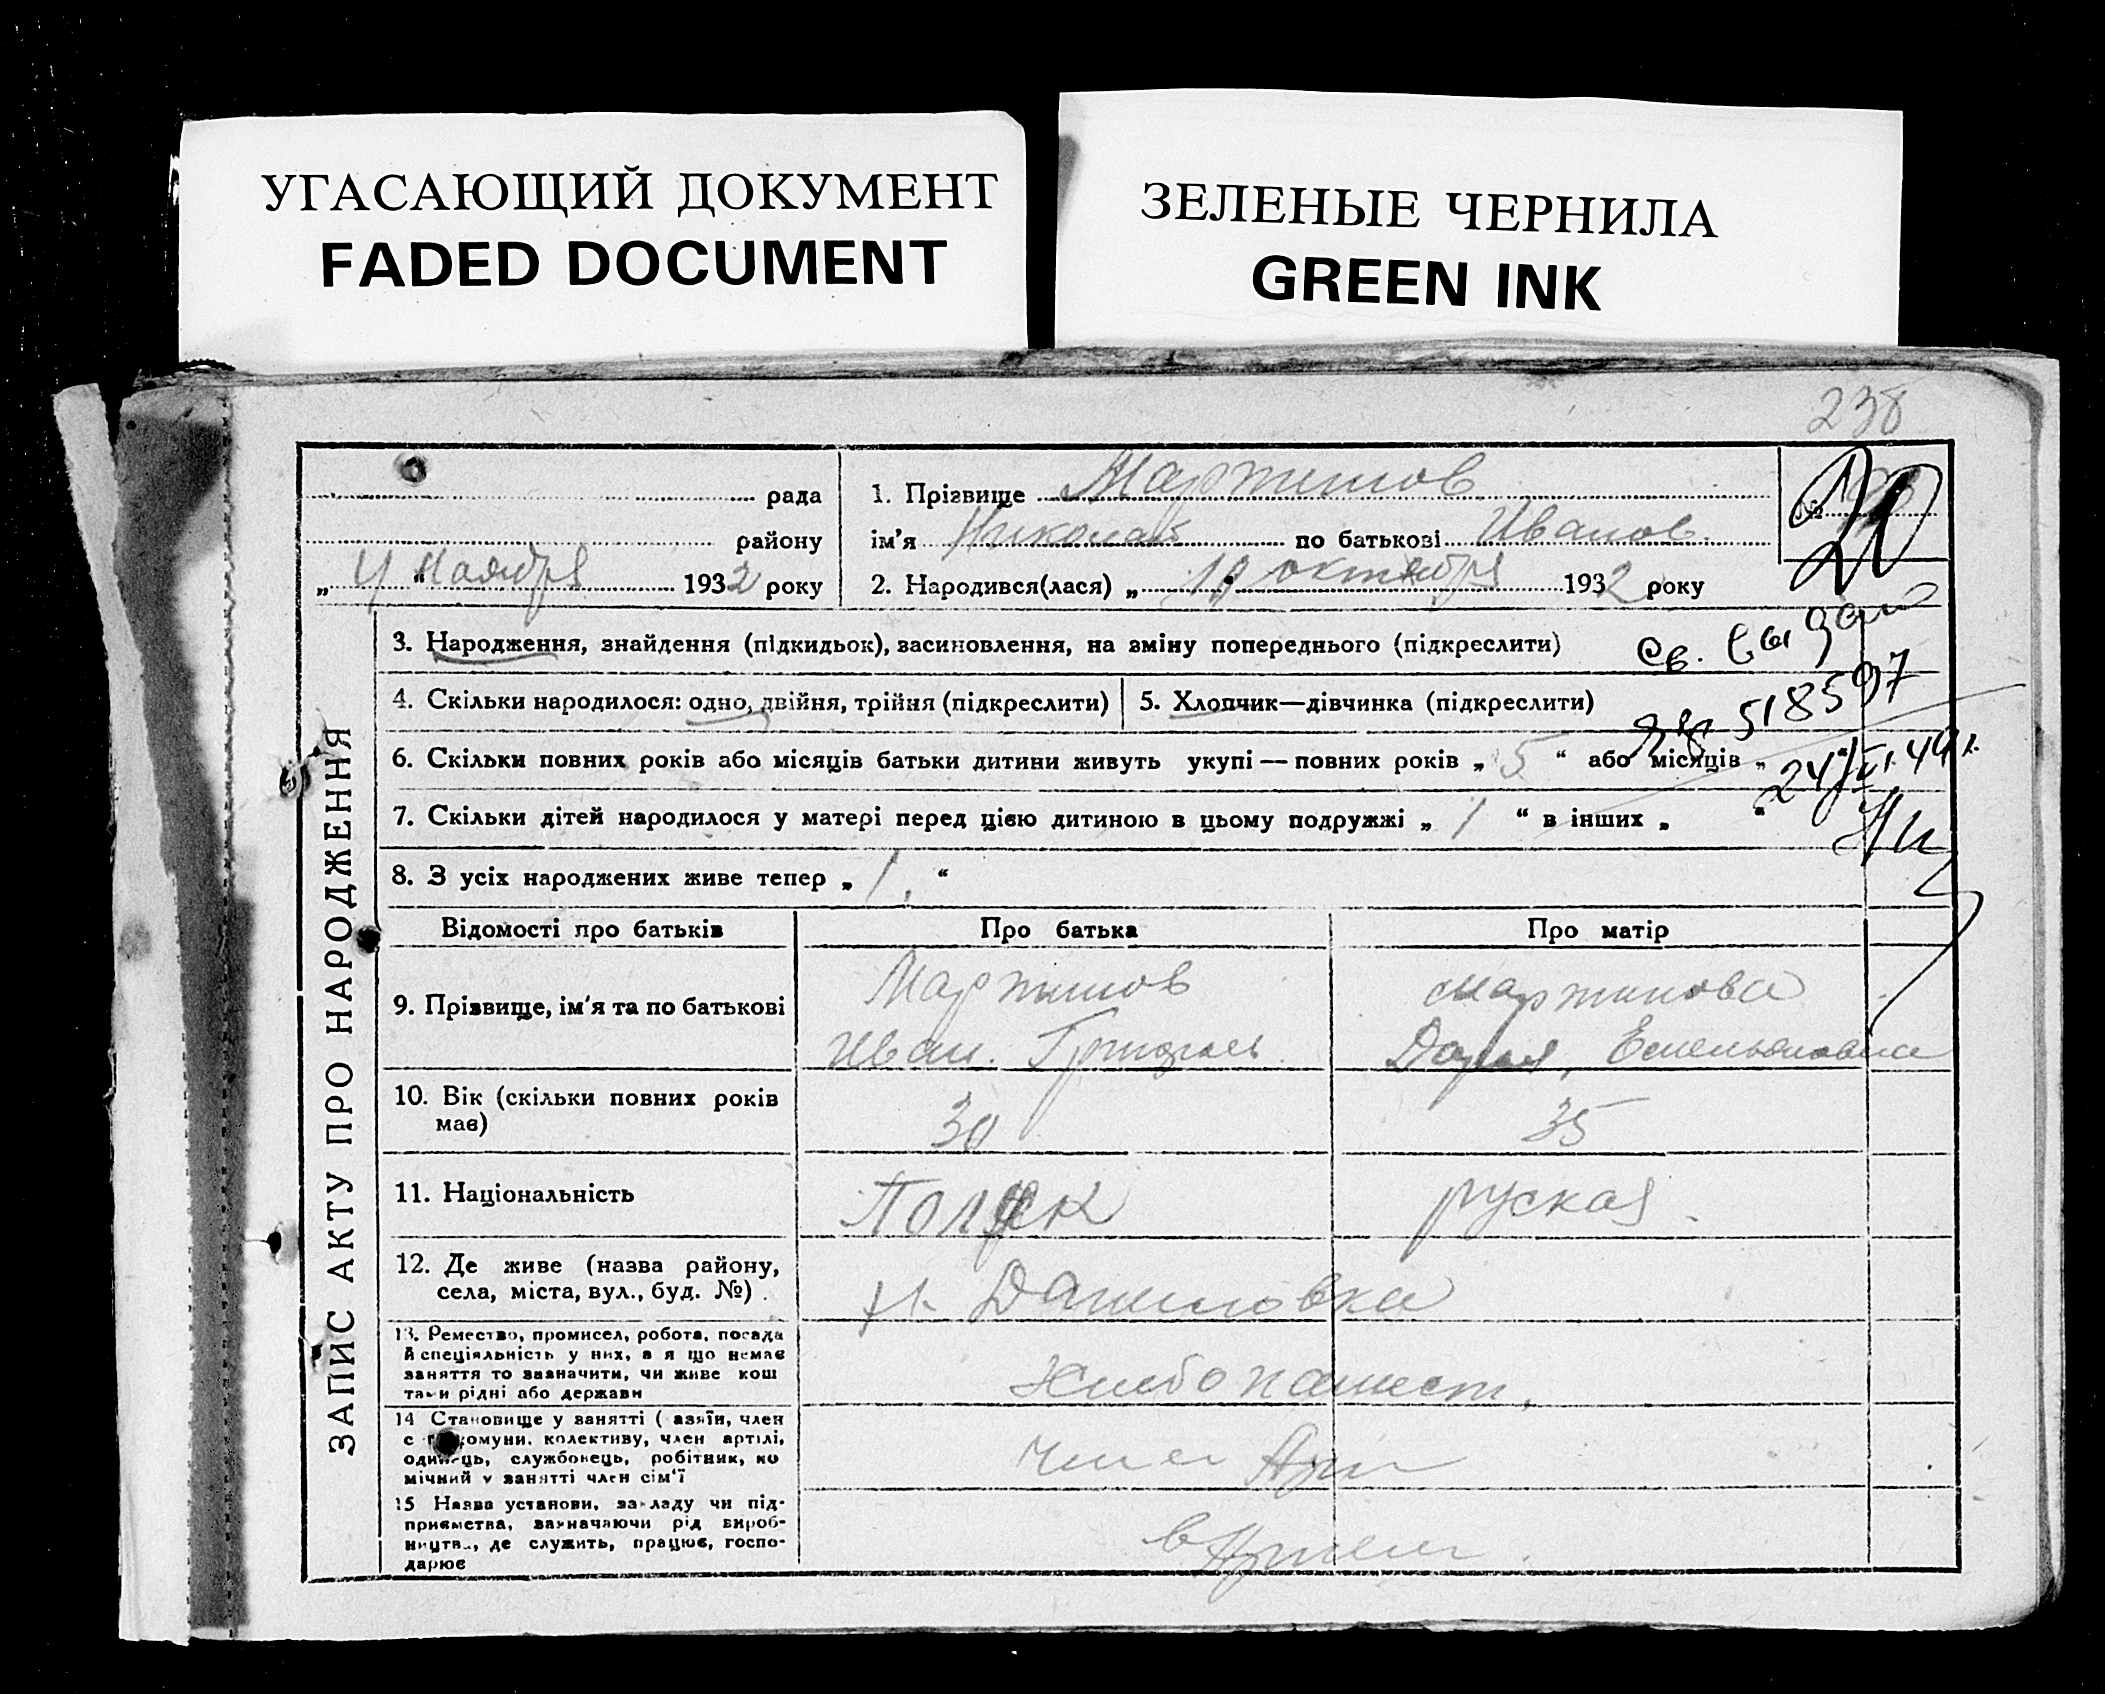 УГАСАЮЩИЙ ДОКУМЕНТ
FADED DOCUMENT
ЗЕЛЕНЫЕ ЧЕРНИЛА
GREEN INK
238
рада
району
„ 4 " Ноября 1932 року
1. Прізвище Мартинов
ім'я Николай по батькові Иванов.
2. Народився(лася) „ 10 октября 1932 року
№
20
ЗАПИС АКТУ ПРО НАРОДЖЕННЯ
3. Народження, знайдення (підкидьок), засиновлення, на зміну попереднього (підкреслити)
Св. выдано
4. Скільки народилося: одно, двійня, трійня (підкреслити)
5. Хлопчик—дівчинка (підкреслити)
518597
6. Скільки повних років або місяців батьки дитини живуть укупі — повних років „ 5 “ або місяців „ “
24/VI.49г.
7. Скільки дітей народилося у матері перед цією дитиною в цьому подружжі „ 1 “ в інших „ “
8. З усіх народжених живе тепер „ 1. “
Відомості про батьків
Про батька
Про матір
9. Прізвище, ім'я та по батькові
Мартинов
Иван. Григорьев.
Мартинова
Дарья, Емельяновна
10. Вік (скільки повних років має)
30
35
11. Національність
Поляк
руская.
12. Де живе (назва району,
села, міста, вул., буд. №).
Даниловка
13. Ремество, промисел, робота, посада
й спеціяльність у них, а я що немає
заняття то зазначити, чи живе кош
тами рідні або держави
Хлебопашест,
14 Становище у занятті ( азяїн, член
комуни. колективу, член артілі,
одинець, службовець, робітник, по
мічний у занятті член сім'ї
член Арт
15 Назва установи, закладу чи під-
приємства, зазначаючи рід вироб-
ництва, де служить, працює, госпо-
дарює
в Артели.